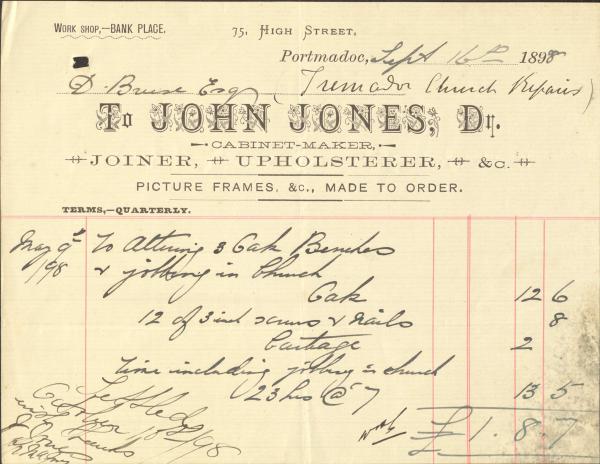 WORK SHOP,—BANK PLACE.
75, HIGH STREET,
Portmadoc, Sept 16th 1898
D. Breese Esq (Tremadoc Church Repairs)
To JOHN JONES, Dr.
CABINET-MAKER,
JOINER, UPHOLSTERER, &c.
PICTURE FRAMES, &c., MADE TO ORDER.
TERMS,—QUARTERLY.
May 9th /98 To Altering 3 Oak Benches
& jobbing in Church
Oak 12 6
12 of 3 inch screws & nails 8
Cartage 2
Time including jobbing in church
23 hrs @ 7 13 5
£1.8.7
Settled
/98
with thanks